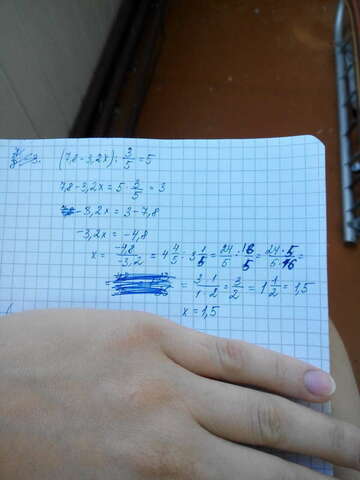 (7,8-3,2x):3/5=5
7,8-3,2x=5·3/5=3
-3,2x=3-7,8
-3,2x=-4,8
x=-4,8/-3,2=4 4/5:3 1/5=24/5:16/5=24·5/5·16=
=3·1/1·2=3/2=1 1/2=1,5
x=1,5